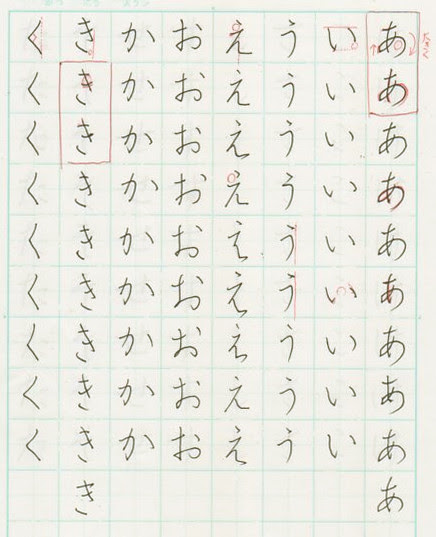 ああああああああああ
いいいいいいいいい
ううううううううう
えええええええええ
おおおおおおおおお
かかかかかかかかか
きききききききききき
くくくくくくくくく